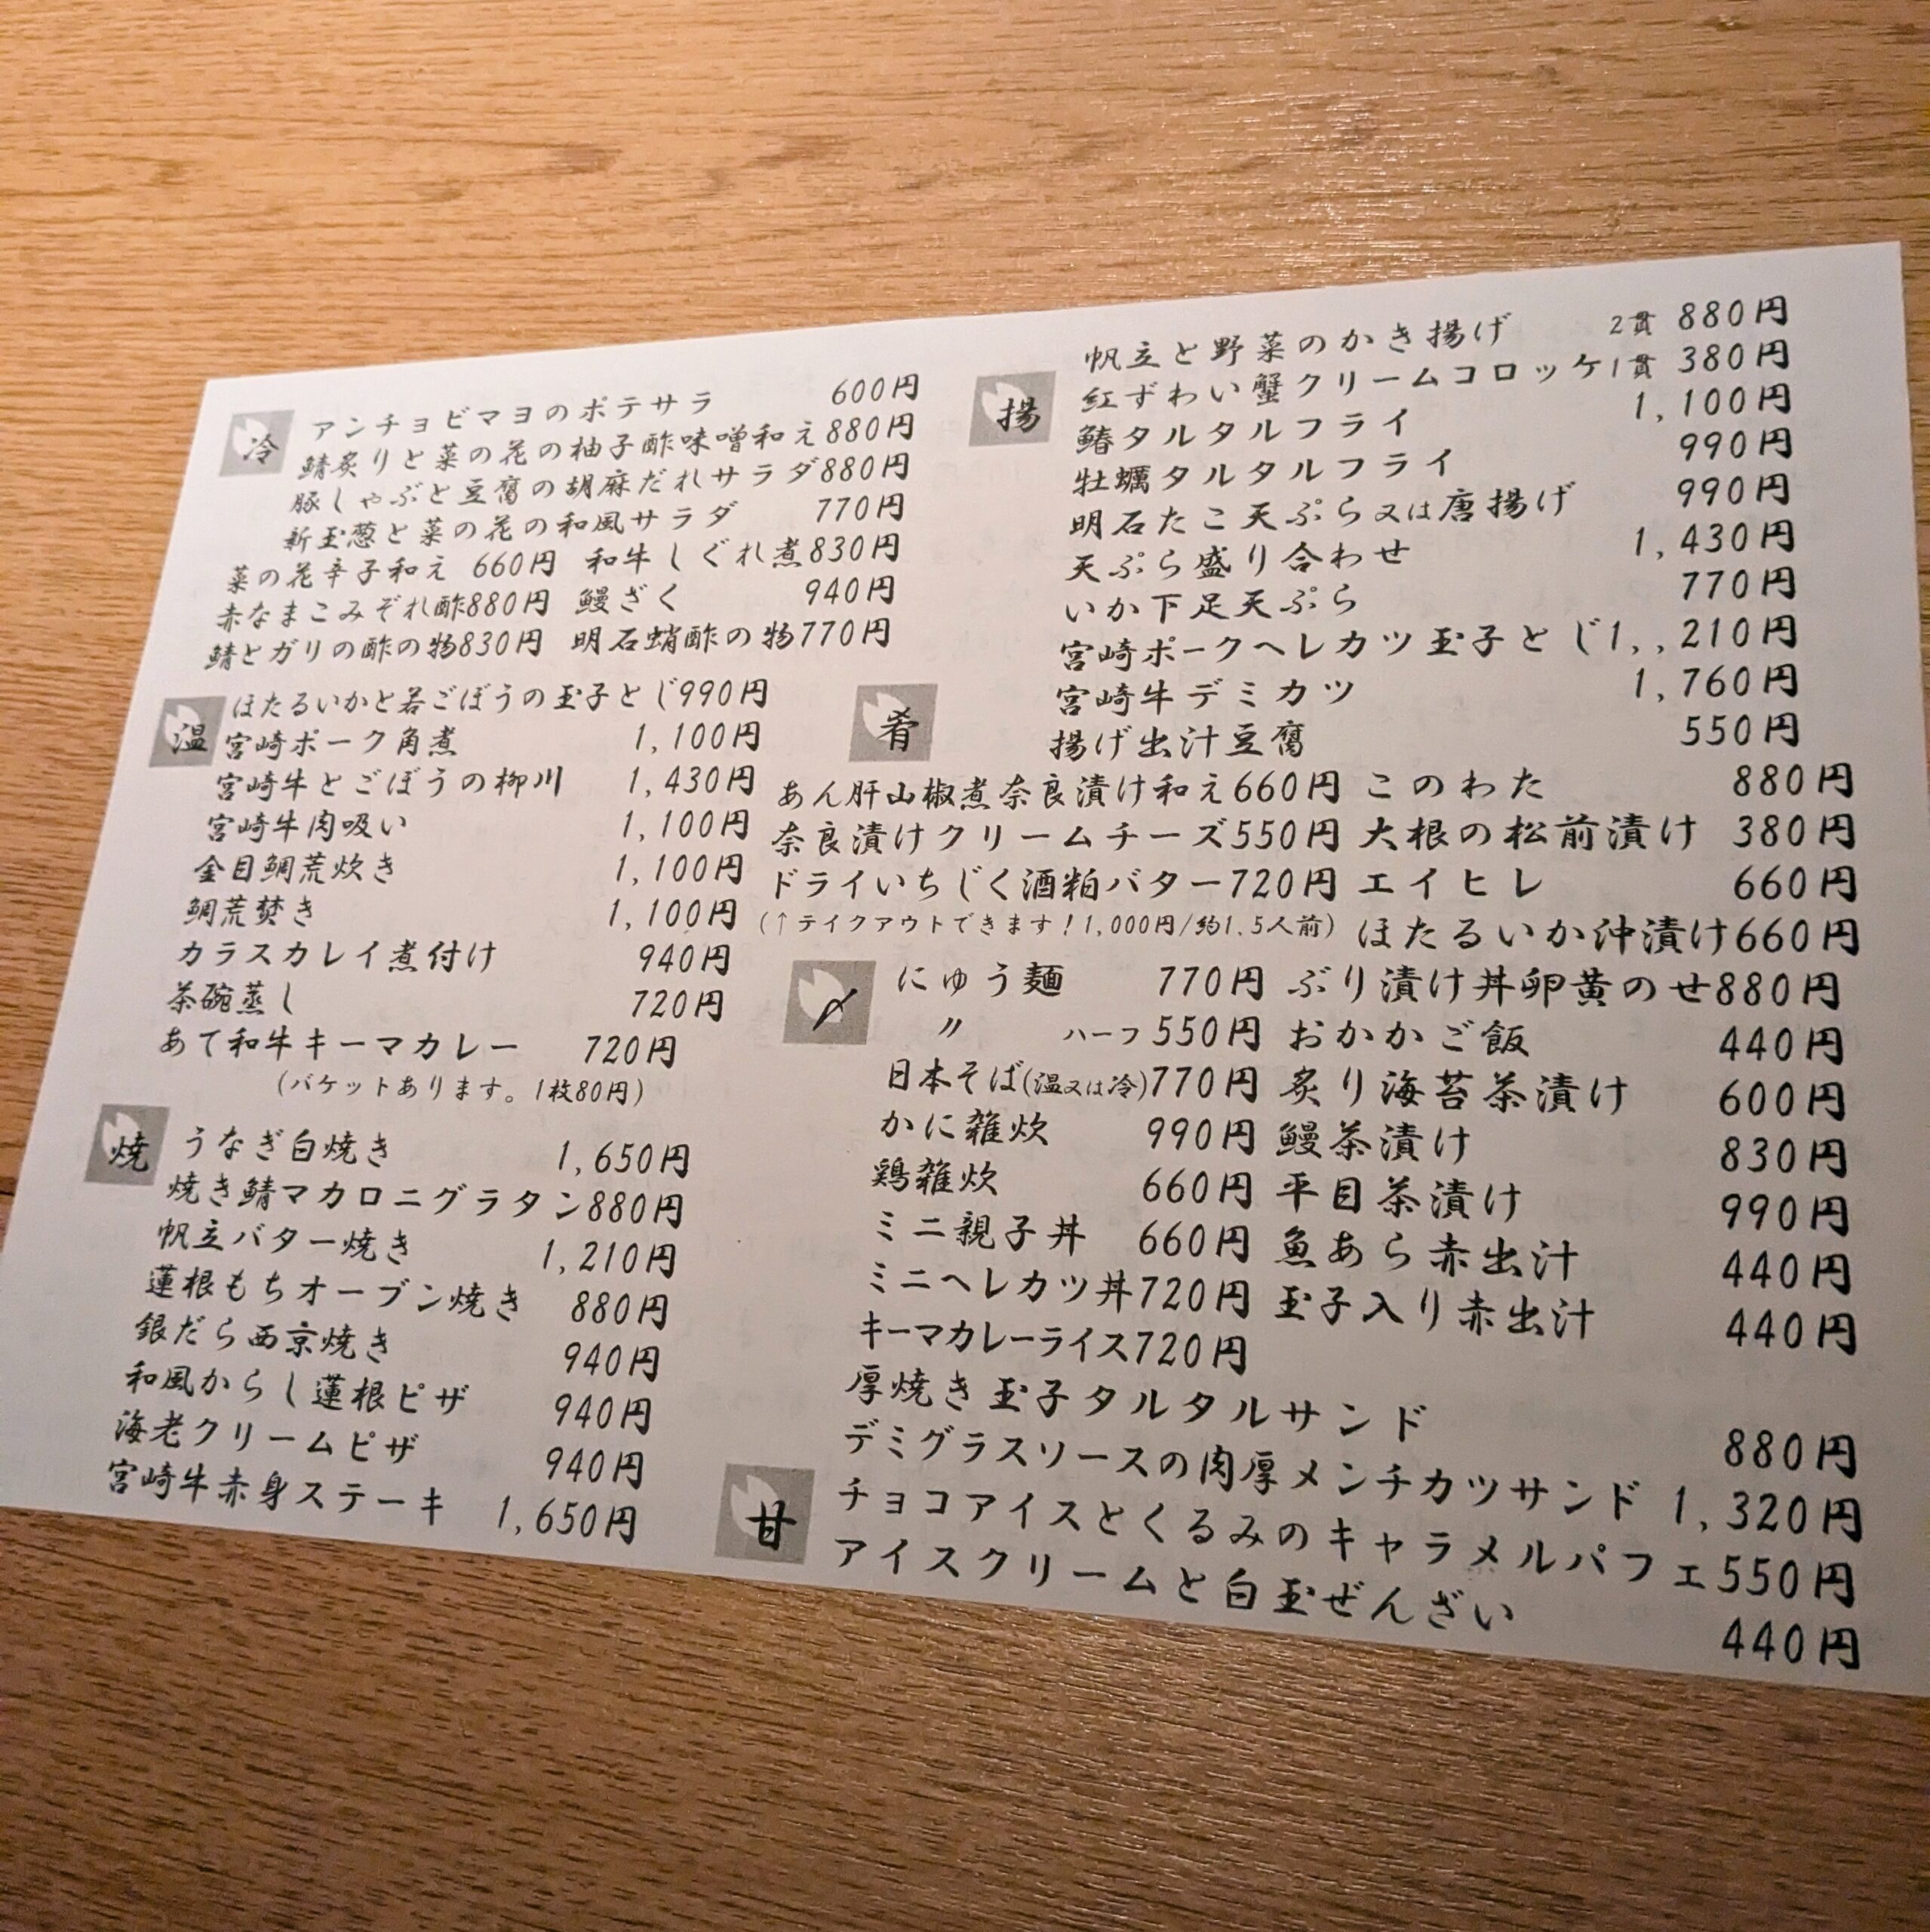 冷
アンチョビマヨのポテサラ 600円
鯖炙りと菜の花の柚子酢味噌和え880円
豚しゃぶと豆腐の胡麻だれサラダ880円
新玉葱と菜の花の和風サラダ 770円
菜の花辛子和え 660円 和牛しぐれ煮830円
赤なまこみぞれ酢880円 鰻ざく 940円
鯖とガリの酢の物830円 明石蛸酢の物770円
温
ほたるいかと若ごぼうの玉子とじ990円
宮崎ポーク角煮 1,100円
宮崎牛とごぼうの柳川 1,430円
宮崎牛肉吸い 1,100円
金目鯛荒炊き 1,100円
鯛荒焚き 1,100円
カラスカレイ煮付け 940円
茶碗蒸し 720円
あて和牛キーマカレー 720円
(バケットあります。1枚80円)
焼
うなぎ白焼き 1,650円
焼き鯖マカロニグラタン880円
帆立バター焼き 1,210円
蓮根もちオーブン焼き 880円
銀だら西京焼き 940円
和風からし蓮根ピザ 940円
海老クリームピザ 940円
宮崎牛赤身ステーキ 1,650円
揚
帆立と野菜のかき揚げ 2貫 880円
紅ずわい蟹クリームコロッケ1貫 380円
鰆タルタルフライ 1,100円
牡蠣タルタルフライ 990円
明石たこ天ぷら又は唐揚げ 990円
天ぷら盛り合わせ 1,430円
いか下足天ぷら 770円
宮崎ポークヘレカツ玉子とじ1,,210円
宮崎牛デミカツ 1,760円
揚げ出汁豆腐 550円
肴
あん肝山椒煮奈良漬け和え660円 このわた 880円
奈良漬けクリームチーズ550円 大根の松前漬け 380円
ドライいちじく酒粕バター720円 エイヒレ 660円
(↑テイクアウトできます！1,000円/約1.5人前) ほたるいか沖漬け660円
〆
にゅう麺 770円 ぶり漬け丼卵黄のせ880円
〃 ハーフ550円 おかかご飯 440円
日本そば(温又は冷)770円 炙り海苔茶漬け 600円
かに雑炊 990円 鰻茶漬け 830円
鶏雑炊 660円 平目茶漬け 990円
ミニ親子丼 660円 魚あら赤出汁 440円
ミニヘレカツ丼720円 玉子入り赤出汁 440円
キーマカレーライス720円
厚焼き玉子タルタルサンド 880円
デミグラスソースの肉厚メンチカツサンド 1,320円
甘
チョコアイスとくるみのキャラメルパフェ550円
アイスクリームと白玉ぜんざい 440円